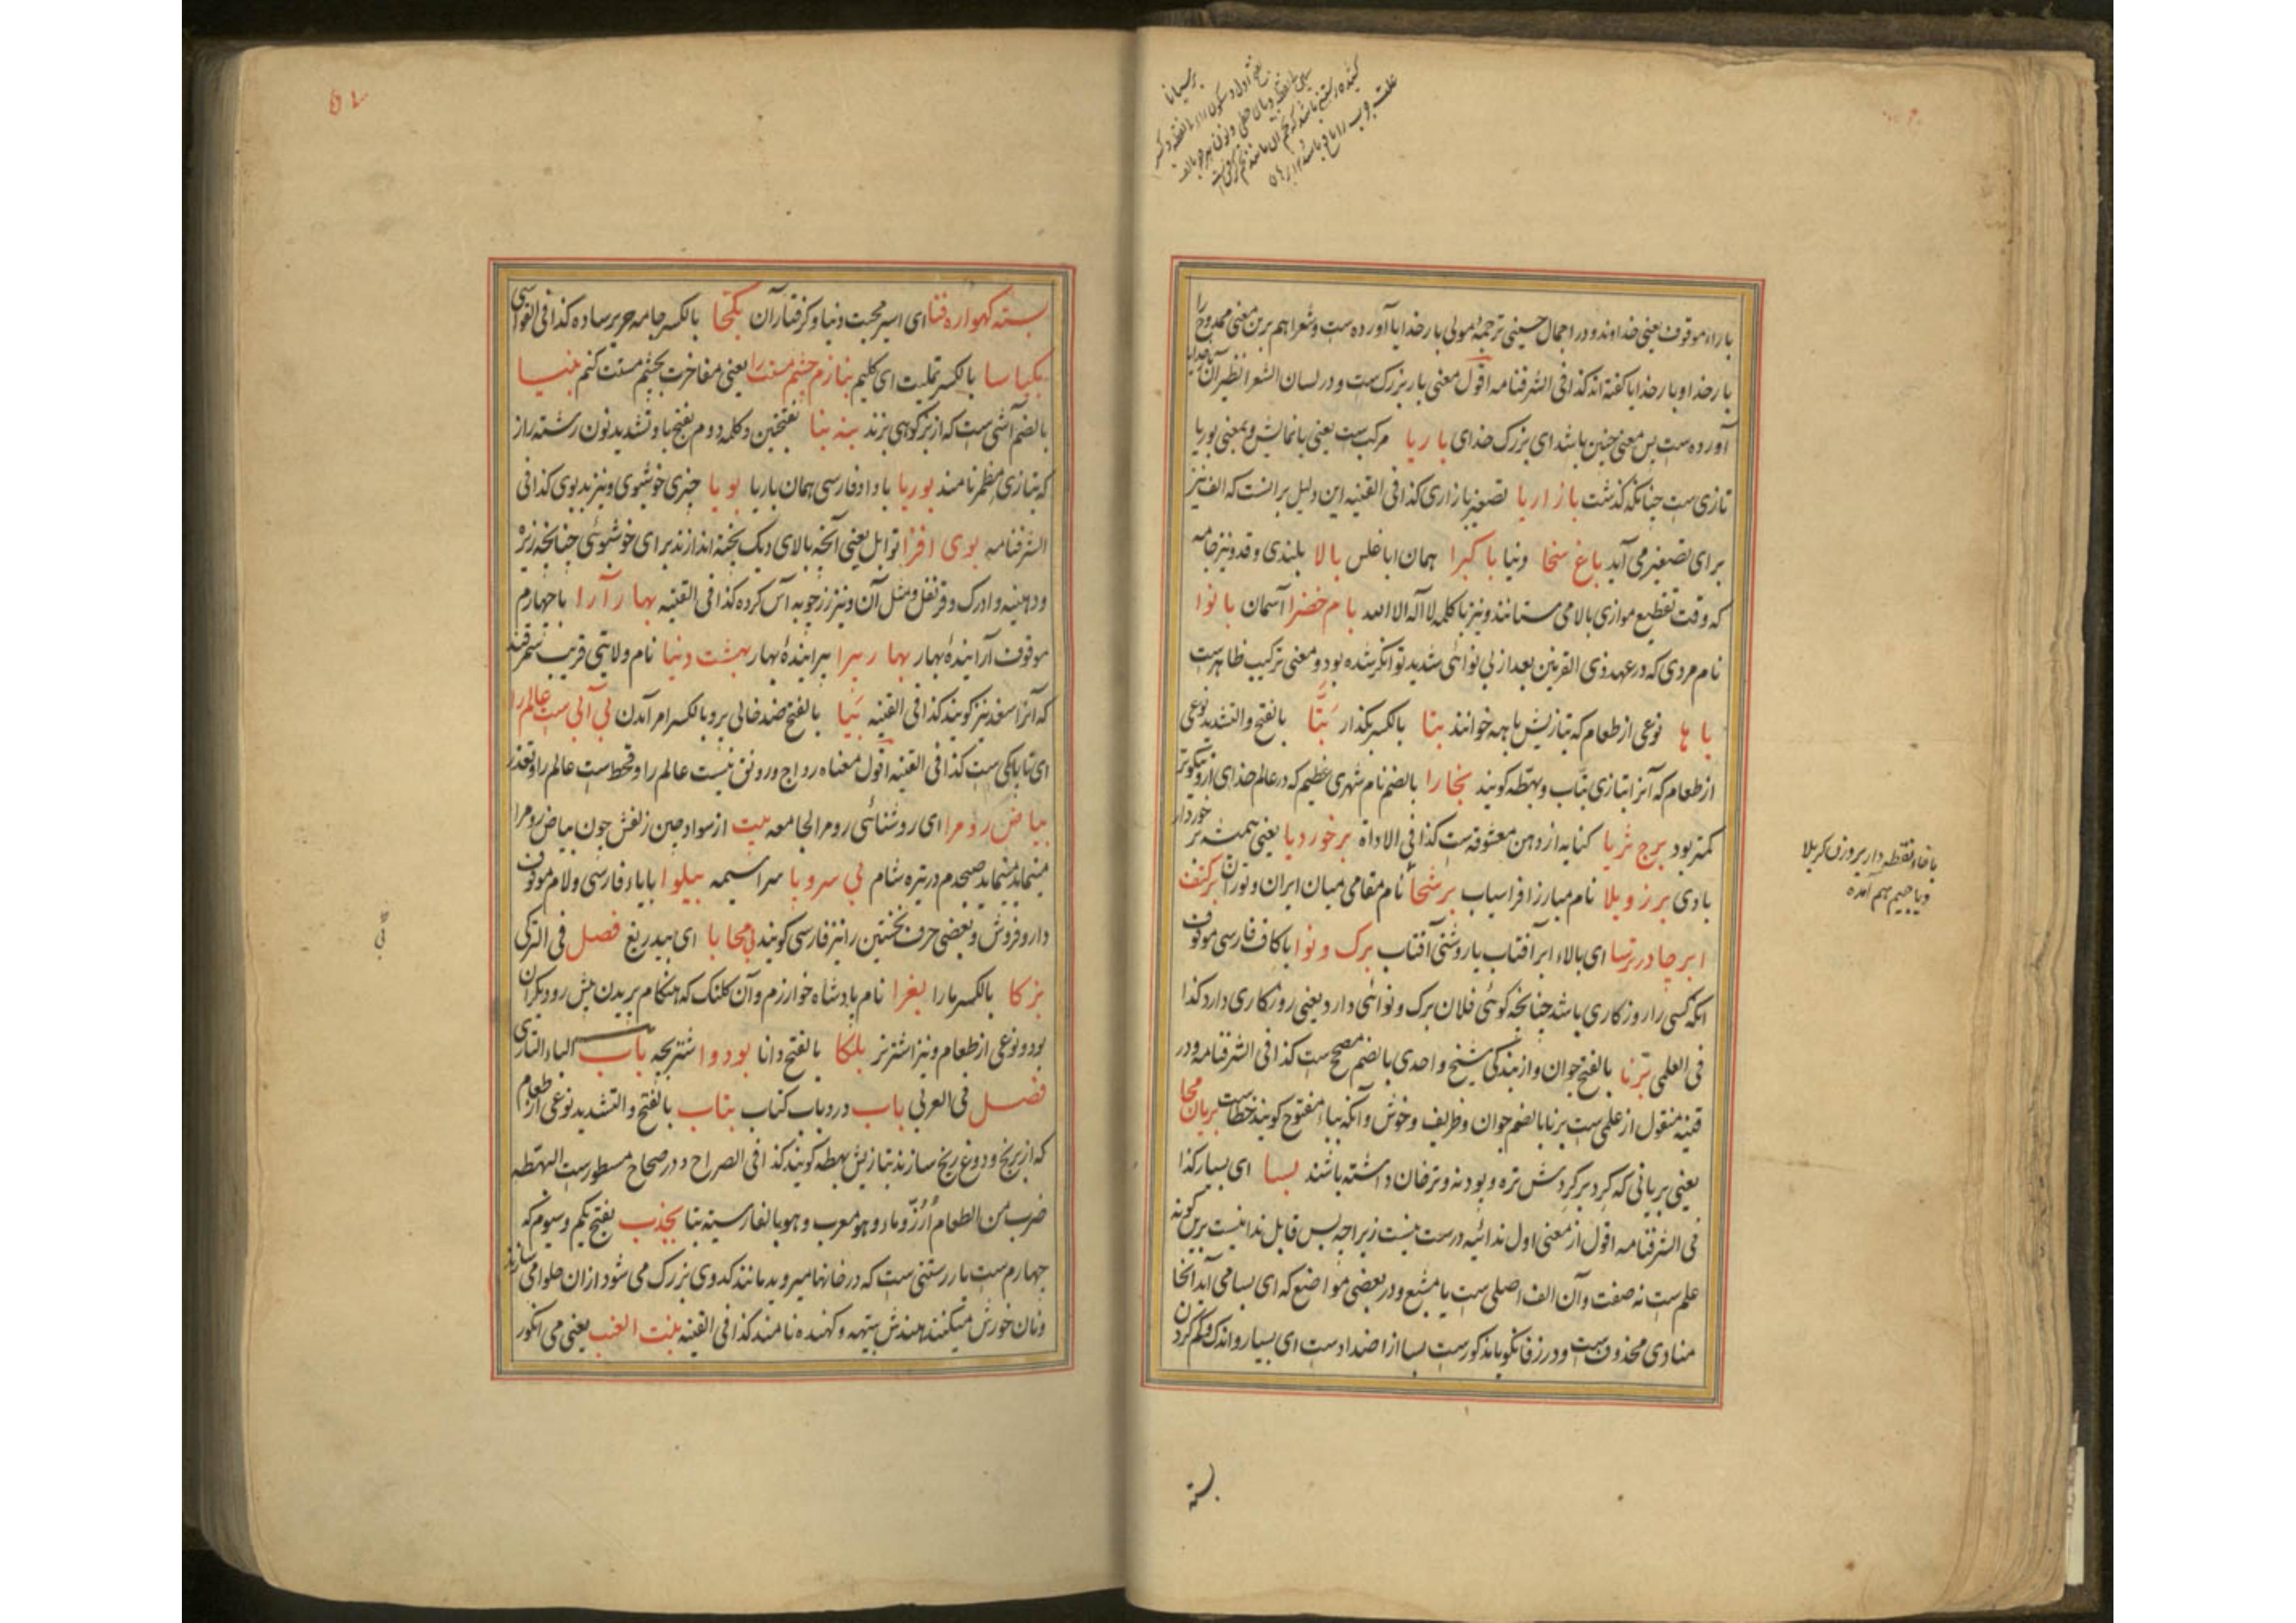 بارا موقوف یعنی خداوند و در اجمال حسینی ترجمهٔ مولی بار خدایا آورده ست و شعرا هم برین معنی ممدوح را
بار خدا و بار خدایا کفته اند کذا فی الشرفنامه اقول معنی بار بزرک ست و در لسان الشعرا نظیر آن
آورده ست بس معنی چنین باشد ای بزرک خدای باریا مرکب ست یعنی با نمایش و بمعنی بوریا
تازی ست چنانکه کذشت بازاریا تصغیر بازاری کذا فی القنیه این دلیل برانست که الف نیز
برای تصغیر می آید باغ سخا دنیا باکبرا همان اباغلس بالا بلندی و قد و نیز جامه
که وقت تقطیع موازی بالا می ستانند و نیز با کلمه لا اله الا الله بام خضرا آسمان بانوا
نام مردی که در عهد ذی القرنین بعد از بی نوائی شدید توانکر شده بود و معنی ترکیب ظاهرست
باها نوعی از طعام که بتازیش باهه خوانند بتا بالکسر بکذار بتّا بالفتح والتشدید نوعی
از طعام که آنرا بتازی بتاب و بهطه کویند بخارا بالضم نام شهری عظیم که در عالم خدای ازو نیکوتر
کمتر بود برج ثریا کنایه از دهن معشوقه ست کذا فی الاداة برخوردیا یعنی همیشه برخوردار
بادی برزویلا نام مبارز افراسیاب برسخا نام مقامی میان ایران و توران برکتف
ابر چادر ترسا ای بالاء ابر آفتاب یا روشنی آفتاب برک و نوا با کاف فارسی موقوف
انکه کسی را روزکاری باشد چنانچه کوئی فلان برک و نوائی دارد یعنی روزکاری دارد کذا
فی العلمی برنا بالفتح جوان و از بندکی شیخ واحدی بالضم مصحح ست کذا فی الشرفنامه و در
قنیه منقول از علمی ست برنا بالضم جوان و ظریف و خوش و آنکه بباء مفتوح کویند خطاست بریان محا
یعنی بریانی که کرد بر کردش تره و بودنه و ترخان داشته باشند بسا ای بسیار کذا
فی الشرفنامه اقول از معنی اول ندائیه درست نیست زیراچه بس قابل ندا نیست برین کونه
علم ست نه صفت و آن الف اصلی ست یا مشبع و در بعضی مواضع که ای بسا می آید آنجا
منادی محذوف ست و در زفانکویا مذکورست بسا از اضدادست ای بسیار و اندک و کم کردن
بسته
با خاء نقطه دار بر وزن کربلا
و با جیم هم آمده
بسته کهواره فنا ای اسیر محبت دنیا و کرفتار آن بکتخا بالکسر جامه حریر ساده کذا فی القواسی
بکیاسا بالکسر تملیت ای کلیم بنازم بچشم منت را یعنی مفاخرت بچشم منت کنم بنیسا
بالضم آشی ست که از بز کوهی بزند بنه بنا بفتحین و کلمه دوم بفتح با و تشدید نون رشته راز
که بتازی مطمر نامند بوریا با واو فارسی همان باریا بویا چیزی خوشبوی و نیز بدبوی کذا فی
الشرفنامه بوی افزا توابل یعنی آنچه بالای دیک بخته اندازند برای خوشبوئی چنانچه زیره
و دهنیه و ادرک و قرنفل و مثل آن و نیز زرچوبه آس کرده کذا فی القنیه بهارآرا با چهارم
موقوف آراینده بهار بهار سرا سراینده بهار بهشت دنیا نام ولایتی قریب سمرقند
که آنرا سغد نیز کویند کذا فی القنیه بیا بالفتح ضد خالی بر و بالکسر امر آمدن بی آبی ست عالم را
ای تاباکی ست کذا فی القنیه اقول معناه رواج و رونق نیست عالم را و قحط ست عالم را و تعذر
بیاض روم را ای روشنائی روم را لجامعه بیت از سواد چین زلفش چون بیاض روم را
مینماید صبحدم در تیره شام بی سروپا سراسیمه بیلوا با یاء فارسی و لام موقوف
دارو فروش و بعضی حرف نخستین را نیز فارسی کویند بی محابا ای بیدریغ فصل فی الترکی
بزکا بالکسر مارا بغرا نام بادشاه خوارزم و آن کلنک که هنکام بریدن پیش رو دیکران
بود و نوعی از طعام و نیز اشتر نر بلکا بالفتح دانا بودوا اشتر بچه باب الباء التازی
فصل فی العربی باب در و باب کتاب بتاب بالفتح والتشدید نوعی از طعام
که از برنج و دوغ ریخ سازند بتازیش بهطه کویند کذا فی الصراح و در صحاح مسطورست البهطه
ضرب من الطعام أرز و ماء و هو معرب و هو بالفارسیة بتا بجذب بفتح یکم و سیوم که
چهارم ست بار رستنی ست که در خانها میروید مانند کدوی بزرک می شود از ان حلوا می سازند
و نان خورش میکنند هندش بیتهه و کهنده نامند کذا فی القنیه بنت العنب یعنی می انکور